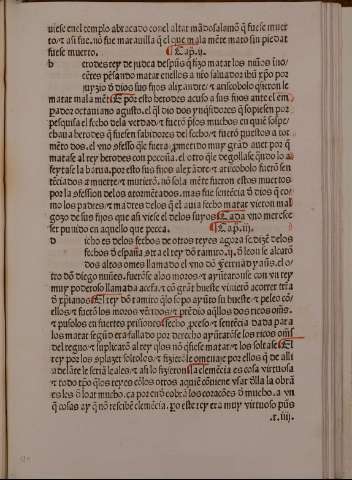 uiese en el templo abracado con el altar mãdo salamõ q̃ fuese muer
to. ⁊ asi fue. nõ fue marauilla q̃ el que mala mẽte mato sin piedat
fuese muerto. ¶ Cap̃. ij.
h erodes rey de iudea despũs q̃ fizo matar los niños ino
cẽtes pẽsando matar en ellos a nr̃o saluador ihũ xp̃o por
iuyzio d̃ dios sus fijos alexandre ⁊ aristobolo q̃sieron le
matar mala mẽte E por esto herodes acuso a sus fijos ante el em
pador octauiano agusto. el q̃l dio dos ynq̃sidores q̃ sopiesen por
pesquisa el fecho dela verdad. ⁊ fuerõ p̃sos muchos en quiẽ sospe
chaua herodes q̃ fuesen sabidores del fecho. ⁊ fuerõ puestos a tor
mẽto dos. el vno cõfesso q̃ fuera p̃metido muy grãd auer por q̃
matase al rey herodes con poçoña. el otro q̃ le degollase quãdo lo a
feytase la barua. por esto sus fijos alexãdre ⁊ aristobolo fuerõ sen
tẽciados a muerte. ⁊ murierõ. nõ sola mẽte fueron estos muertos
por la relaciõ delos atormẽtados. mas fue sentẽcia d̃ dios q̃ co
mo los padres ⁊ madres delos q̃ el auia fecho matar vieron mal
gozo de sus fijos que asi viese el delos suyos Cada vno merese
ser punido en aquello que pecca. ¶ Cap̃. iij.
d icho es delos fechos de otros reyes agora se dizẽ delos
fechos d̃ españa. era el rey dõ ramiro. ij. d̃ leon se alcarõ
dos altos omes llamado el vno dõ Fernãd yañs. el o
tro dõ diego nuñes. fuerõse alos moros. ⁊ ayũtaron se con vn rey
muy poderoso llamada acefa. ⁊ cõ grãt hueste vinierõ acorrer trr̃a
d̃ xp̃ianos El rey dõ ramiro q̃ lo sopo ayũto su hueste ⁊ peleo cõ
ellos. ⁊ fuerõ los moros vẽcidos. ⁊ p̃dio aq̃llos dos ricos oms̃.
⁊ pusolos en fuertes prisiones fecho p̃ceso ⁊ sentẽcia dada para
los matar segũd era fallado por derecho ayũtarõse los ricos oms̃
del regno. ⁊ suplicarõ al rey q̃ los nõ q̃siese matar. ⁊ los soltase El
rey por les splazer soltolos. ⁊ fizierõle omenaje por ellos q̃ de alli
adelãte le seriã leales. ⁊ asi lo fizeron la clemẽcia es cosa virtuosa
⁊ todo tp̃o q̃ los reyes cõ los otros aquiẽ cõuiene vsar d̃lla la obrã
es los d̃ loar mucho. ca por ende cobrã los coracões d̃ mucho. a vn
q̃ cosas ay q̃ nõ rescibẽ clemẽcia. po este rey era muy virtuoso pũs
.r. iiij.